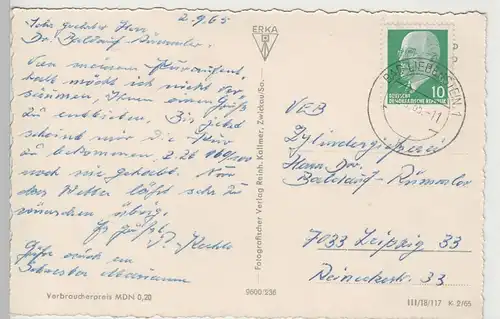 2.9.65
Sehr geehrter Herr
Dr. Baldauf-Rümmler.
Von meinem Kuraufent-
halt möcht ich nicht ver-
säumen, Ihnen einen Gruß
zu entbieten. Bis jetzt
scheint mir die Kur
zu bekommen,
noch nie gehabt. Nur
das Wetter läßt sehr zu
wünschen übrig.
Es grüßt
Grüße auch an
Schwester Marianne
Verbraucherpreis MDN 0,20
ERKA
Fotografischer Verlag Reinh. Kallmer, Zwickau/Sa.
9600/236
10
DEUTSCHE
DEMOKRATISCHE REPUBLIK
BAD LIEBENSTEIN 1
VEB
Zylindergießerei
Herrn Dr.
Baldauf-Rümmler
7033 Leipzig 33
33
III/18/117 K 2/65